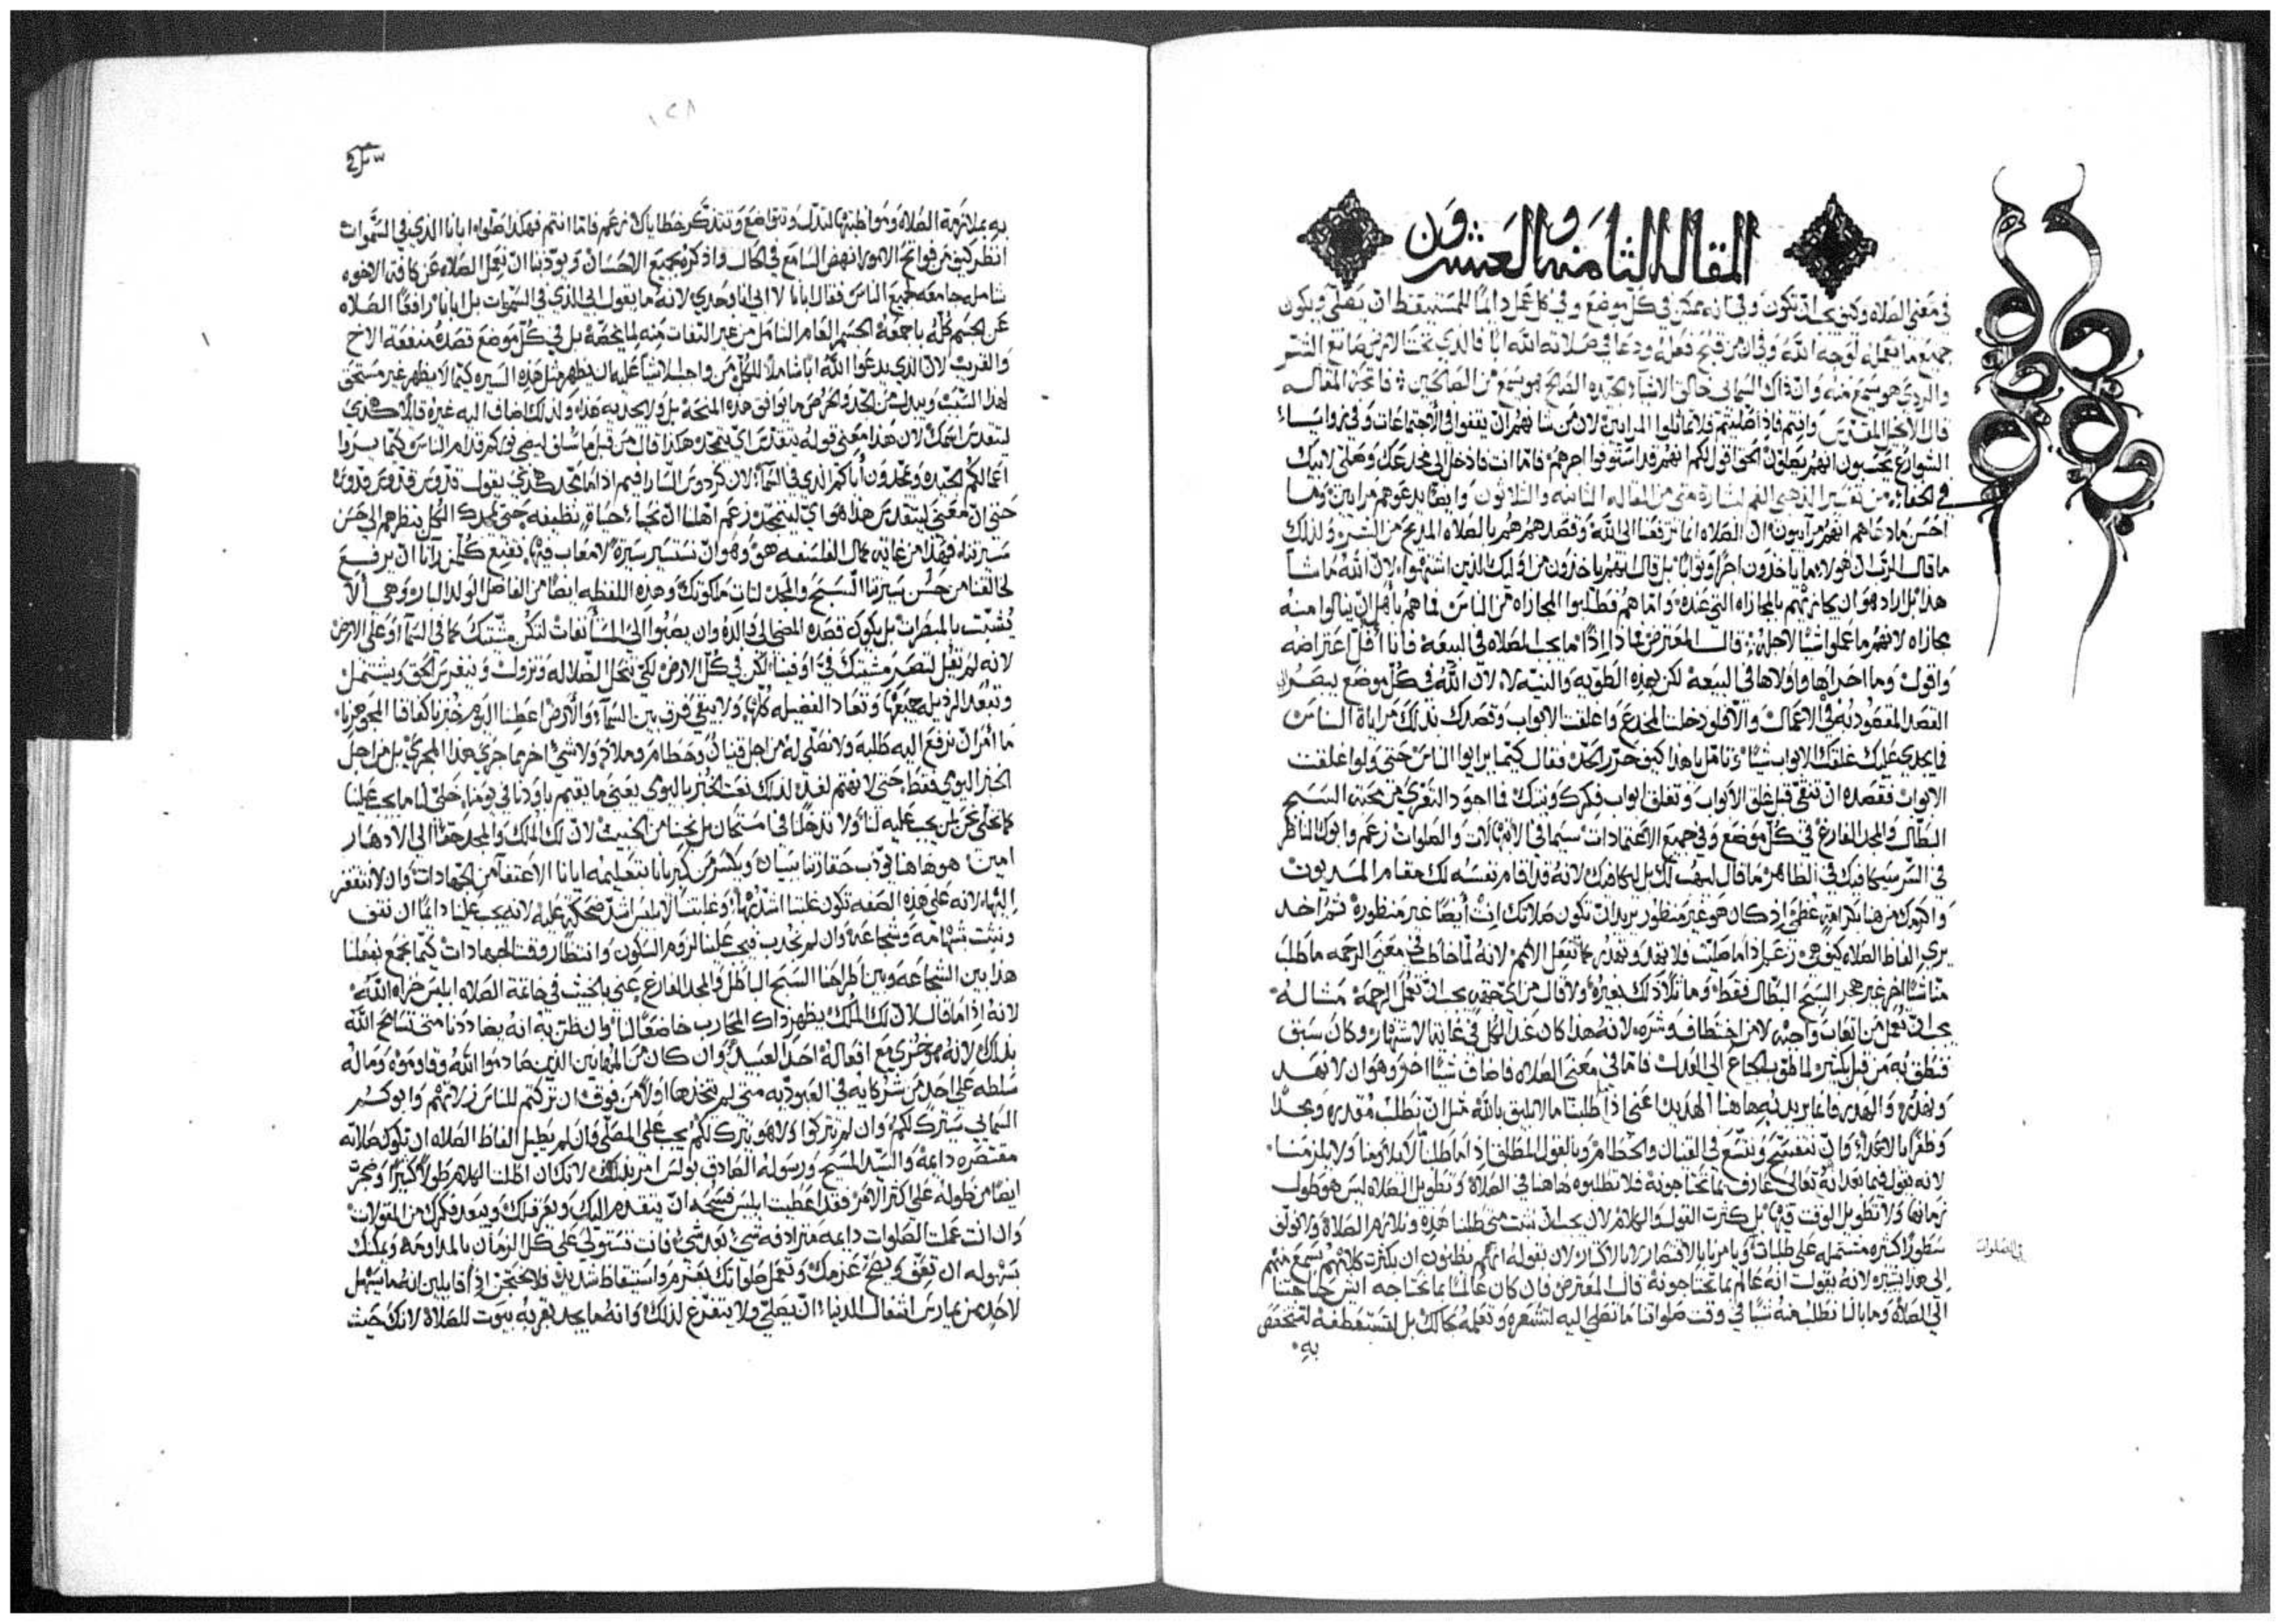 المقاله الثامنه والعشرون
في معنى الصلاه وكيف يجب ان تكون وفي انه ممكن في كل موضع وفي كل عمل دايمًا للمستيقظ ان يصلي ويكون
جميع ما يعمله لوجه الله وفي ان من قبح فعله ودعا في صلاته الله ابًا فالذي تحت الارض صانع الشر
والردي هو يسمع منه وان ذاك السماي خالق الاشيا الجيده الصالح هو يسمع من الصالحين فاتحة المقاله
قال الانجيل المقدس وانتم فاذا صليتم فلا تماثلوا المرايين لان من شانهم ان يقفوا في الاجتماعات وفي زوايا
الشوارع يحسبون انهم يصلون الحق اقول لكم انهم قد استوفوا اجرهم فاما انت فادخل الى مخدعك وصلي لابيك
في الخفا من تفسير الذهبي الفم لبشارة متى من المقاله التاسعه والثلاثون وايضًا يدعوهم مرايين وما
احسن ما دعاهم انهم مرآييون لان الصلاه انما ترفع الى الله وقصدهم هم بالصلاه المديح من البشر ولذلك
ما قال الرب ان هولاء ما ياخذون اجرًا وثوابًا بل قال انهم ياخذون من اوليك الذين اشتهوا لان الله ما شا
هذا بل اراد هو ان يكافيهم بالمجازاه التي عنده واما هم فطلبوا المجازاه من الناس فما هم باهل ان ينالوا منه
مجازاه لانهم ما عملوا شيًا لاجله قال المعترض فماذا اذًا ما يجب الصلاه في البيعه فانا اقبل اعتراضه
واقول وما احراها واولاها في البيعه لكن بهذه الطويه والنيه لا لان الله في كل موضع يبصر
القصد المقصود به في الاعمال والا فلو دخلنا المخدع واغلقت الابواب وقصدك بذلك مراياة الناس
فما يجدي عليك غلقك الابواب شيًا وتامل يا هذا كيف حرر الحد فقال كيما يرايوا الناس حتى ولوا غلقت
الابواب فقصده ان تنقى قبل غلق الابواب وتغلق ابواب فكرك ونيتك فما اجود التعري من محبة السبح
البطال والمجد الفارغ في كل موضع وفي جميع الاعتمادات سيما في الابتهالات والصلوات زعم وابوك الناظر
في السر سيكافيك في الظاهر ما قال ليهب لك بل ليكافيك لانه قد اقام نفسه لك مقام المديون
واكرمك من هنا بكرامه عظمى اذ كان هو غير منظور يريد ان تكون صلاتك انت ايضًا غير منظوره ثم اخد
يري الفاظ الصلاه كيف هي زعم اذا ما صليت فلا تهذ وتهذر كما تفعل الامم لانه لما خاطب في معنى الرحمه ما طلب
منا شيًا اخر غير هجر السبح البطال فقط وما تلا ذلك بغيره ولا قال من اي جهه يجب ان تعمل الرحمه مثاله
يجب ان تعمل من اتعاب واجبه لا من اختطاف وشره لانه هذا كان عند الكل في غاية الاشتهار وكان سبق
فنطق به من قبل بكثير لما طوب الجياع الى العدل فاما في معنى الصلاه فاضاف شيًا اخر وهو ان لا تهذ
وتهذر والهذر فانما يريد به ها هنا الهذيان اعني اذا طلبنا ما لا يليق بالله مثل ان نطلب مقدره ومجدًا
وظفرًا بالاعدا وان نتفسح ونتسع في القنيان والحطام وبالقول المطلق اذا ما طلبنا الا يلايمنا ولا يلزمنا
لانه يقول فيما بعد انه تعالى عارف بما تحتاجونه فلا تطلبوه ها هنا في الصلاة وتطويل الصلاه ليس هو طول
زمانها ولا تطويل الوقت فيها بل كثرت القول والكلام لان يجب ان نثبت متى طلبنا هذه ونلازم الصلاة ولا نولف
سطورًا كثيره مشتمله على طلبات ويامرنا بالاقتصار لا بالاكثار لان بقوله انهم يظنون ان بكثرت كلامهم يسمع منهم
الى هذا يشير لانه يقول انه عالم بما تحتاجونه قال المعترض فان كان عالمًا بما نحتاجه ايش حاجتنا
الى الصلاه وما بالنا نطلب منه شيًا في وقت صلواتنا ما نصلي اليه لتشعره وتعلمه بحالك بل لتستعطفه لتختص
به
في الصلوات
١٢٨
به بملازمة الصلاه ومواظبتها لتذلل وتتواضع وتتذكر خطاياك زعم فاما انتم فهكذا صلوا ابانا الذي في السموات
انظر كيف من فواتح الامور انهض السامع في الحال واذكره بجميع الاحسان ويودبنا ان نعمل الصلاه عن كافة الاخوه
شامله جامعه لجميع الناس فقال ابانا لا ابي انا وحدي لانه ما يقول ابي الذي في السموات بل ابانا رافعًا الصلاه
عن الجسم كله باجمعه الجسم العام الشامل من غير التفات منه لما يخصه بل في كل موضع قصده منفعة الاخ
والقريب لان الذي يدعوا الله ابًا شاملًا للكل من واجب الاشيا عليه ان يظهر مثل هذه السيره كيما لا يظهر غير مستحق
لهذا النسب ويبدل من الجد والحرص ما يوافق هذه المنحه بل ولا يجديه هذا ولذلك ضاف اليه غيره قايلًا هكذى
ليتقدس اسمك لان هذا معنى قوله يتقدس اي يتمجد وهكذا قال من قبل ما سلف ليضي نوركم قدام الناس كيما يروا
اعمالكم الجيده ويمجدون اباكم الذي في السما لان كردوس السارافيم اذا ما مجد هكذى يقول قدوس قدوس قدوس
حتى ان معنى ليتقدس هذا هو اي ليتمجد زعم اهلنا ان نحيا حياة نظيفه حتى يمجدك الكل بنظرهم الى حسن
سيرتنا فهذا من غاية كمال الفلسفه هو وهو ان نستسير سيرة لا معاب فيها تقنع كل من رآنا ان يرفع
لخالقنا من حسن سيرتنا السبح والمجد لتات ملكوتك وهذه اللفظه ايضًا من الفاضل الولد البار وهي الا
يشبث بالمبصرات بل يكون قصده المضي الى والده وان يصبوا الى المستانفات لتكن مشيتك كما في السما وعلى الارض
لانه لم يقل لتصير مشيتك في او فينا لكن في كل الارض لكي تنحل الضلاله وتزول وينغرس الحق ويشتمل
وتبعد الرذيله جميعها وتعاد الفضيله كلها ولا يبقى فرق بين السما والارض اعطنا اليوم خبزنا كفافنا الجوهري
ما امر ان نرفع اليه طلبه ولا نصلي له من اجل قنيان وحطام وملاذ ولا شي اخر مما جرى هذا المجرى بل من اجل
الخبز اليومي فقط حتى لا نهتم لغد لذلك نعت الخبز باليومي يعني ما يقيم باودنا في يومنا خلي لنا ما يجب علينا
كما نخلي نحن لمن يجب عليه لنا ولا تدخلنا في امتحان بل نجنا من الخبيث لان لك الملك والمجد حقًا الى الادهار
امين هو ها هنا يودب حقارتنا ببيان ويكسر من كبريانا بتعليمه ايانا الاعتفا من الجهادات وان لا نتقفز
اليها لانه على هذه الصفه تكون غلبتنا اشد بها وغلبتنا لابليس اشد ضحكه عليه لانه يجب علينا دايمًا ان نقف
ونثبت بشهامه وشجاعه وان لم نجدب فيجب علينا لزوم السكون وانتظار وقت الجهادات كيما نجمع بفعلنا
هذا بين الشجاعه وبين اطراحنا السبح الباطل والمجد الفارغ عنى بالخبيث في خاتمة الصلاه ابليس خزاه الله
لانه اذا ما قال لان لك الملك يظهر ذاك المحارب خاضعًا لنا وان ظن به انه يضاددنا متى تسامح الله
بذلك لانه هو جزي مع افعاله احد العبيد وان كان من المهانين الذين صادموا الله وقاوموه وماله
سلطه على احد من شركايه في العبوديه متى لم يتخذها اولًا من فوق ان تركتم للناس زلاتهم وابوكم
السماي سيترك لكم وان لم تتركوا ولا هو يترك لكم يجب على المصلي فان لم يطيل الفاظ الصلاه ان تكون صلاته
مقتصره دايمه والسيد المسيح ورسوله الصادق بولس امر بذلك لانك ان اطلت الكلام طولًا كثيرًا وضجرت
ايضًا من طوله على اكثر الامر فقد اعطيت ابليس فسحه ان يتقدم اليك ويعرقلك ويبعد فكرك من المقولات
وان انت عملت الصلوات دايمه مترادفه شي بعد شي فانت تستولي على كل الزمان بالمداومه ويمكنك
بسهوله ان تفق ويصح عزمك وتعمل صلواتك بعزم واستيقاظ شديد فلا نحتجن اذًا قايلين انه ما يسهل
لاحد ممن يمارس اشغال الدنيا ان يصلي ولا يتفرغ لذلك وانه ما يجد بقربه بيوت للصلاة لانك حيث